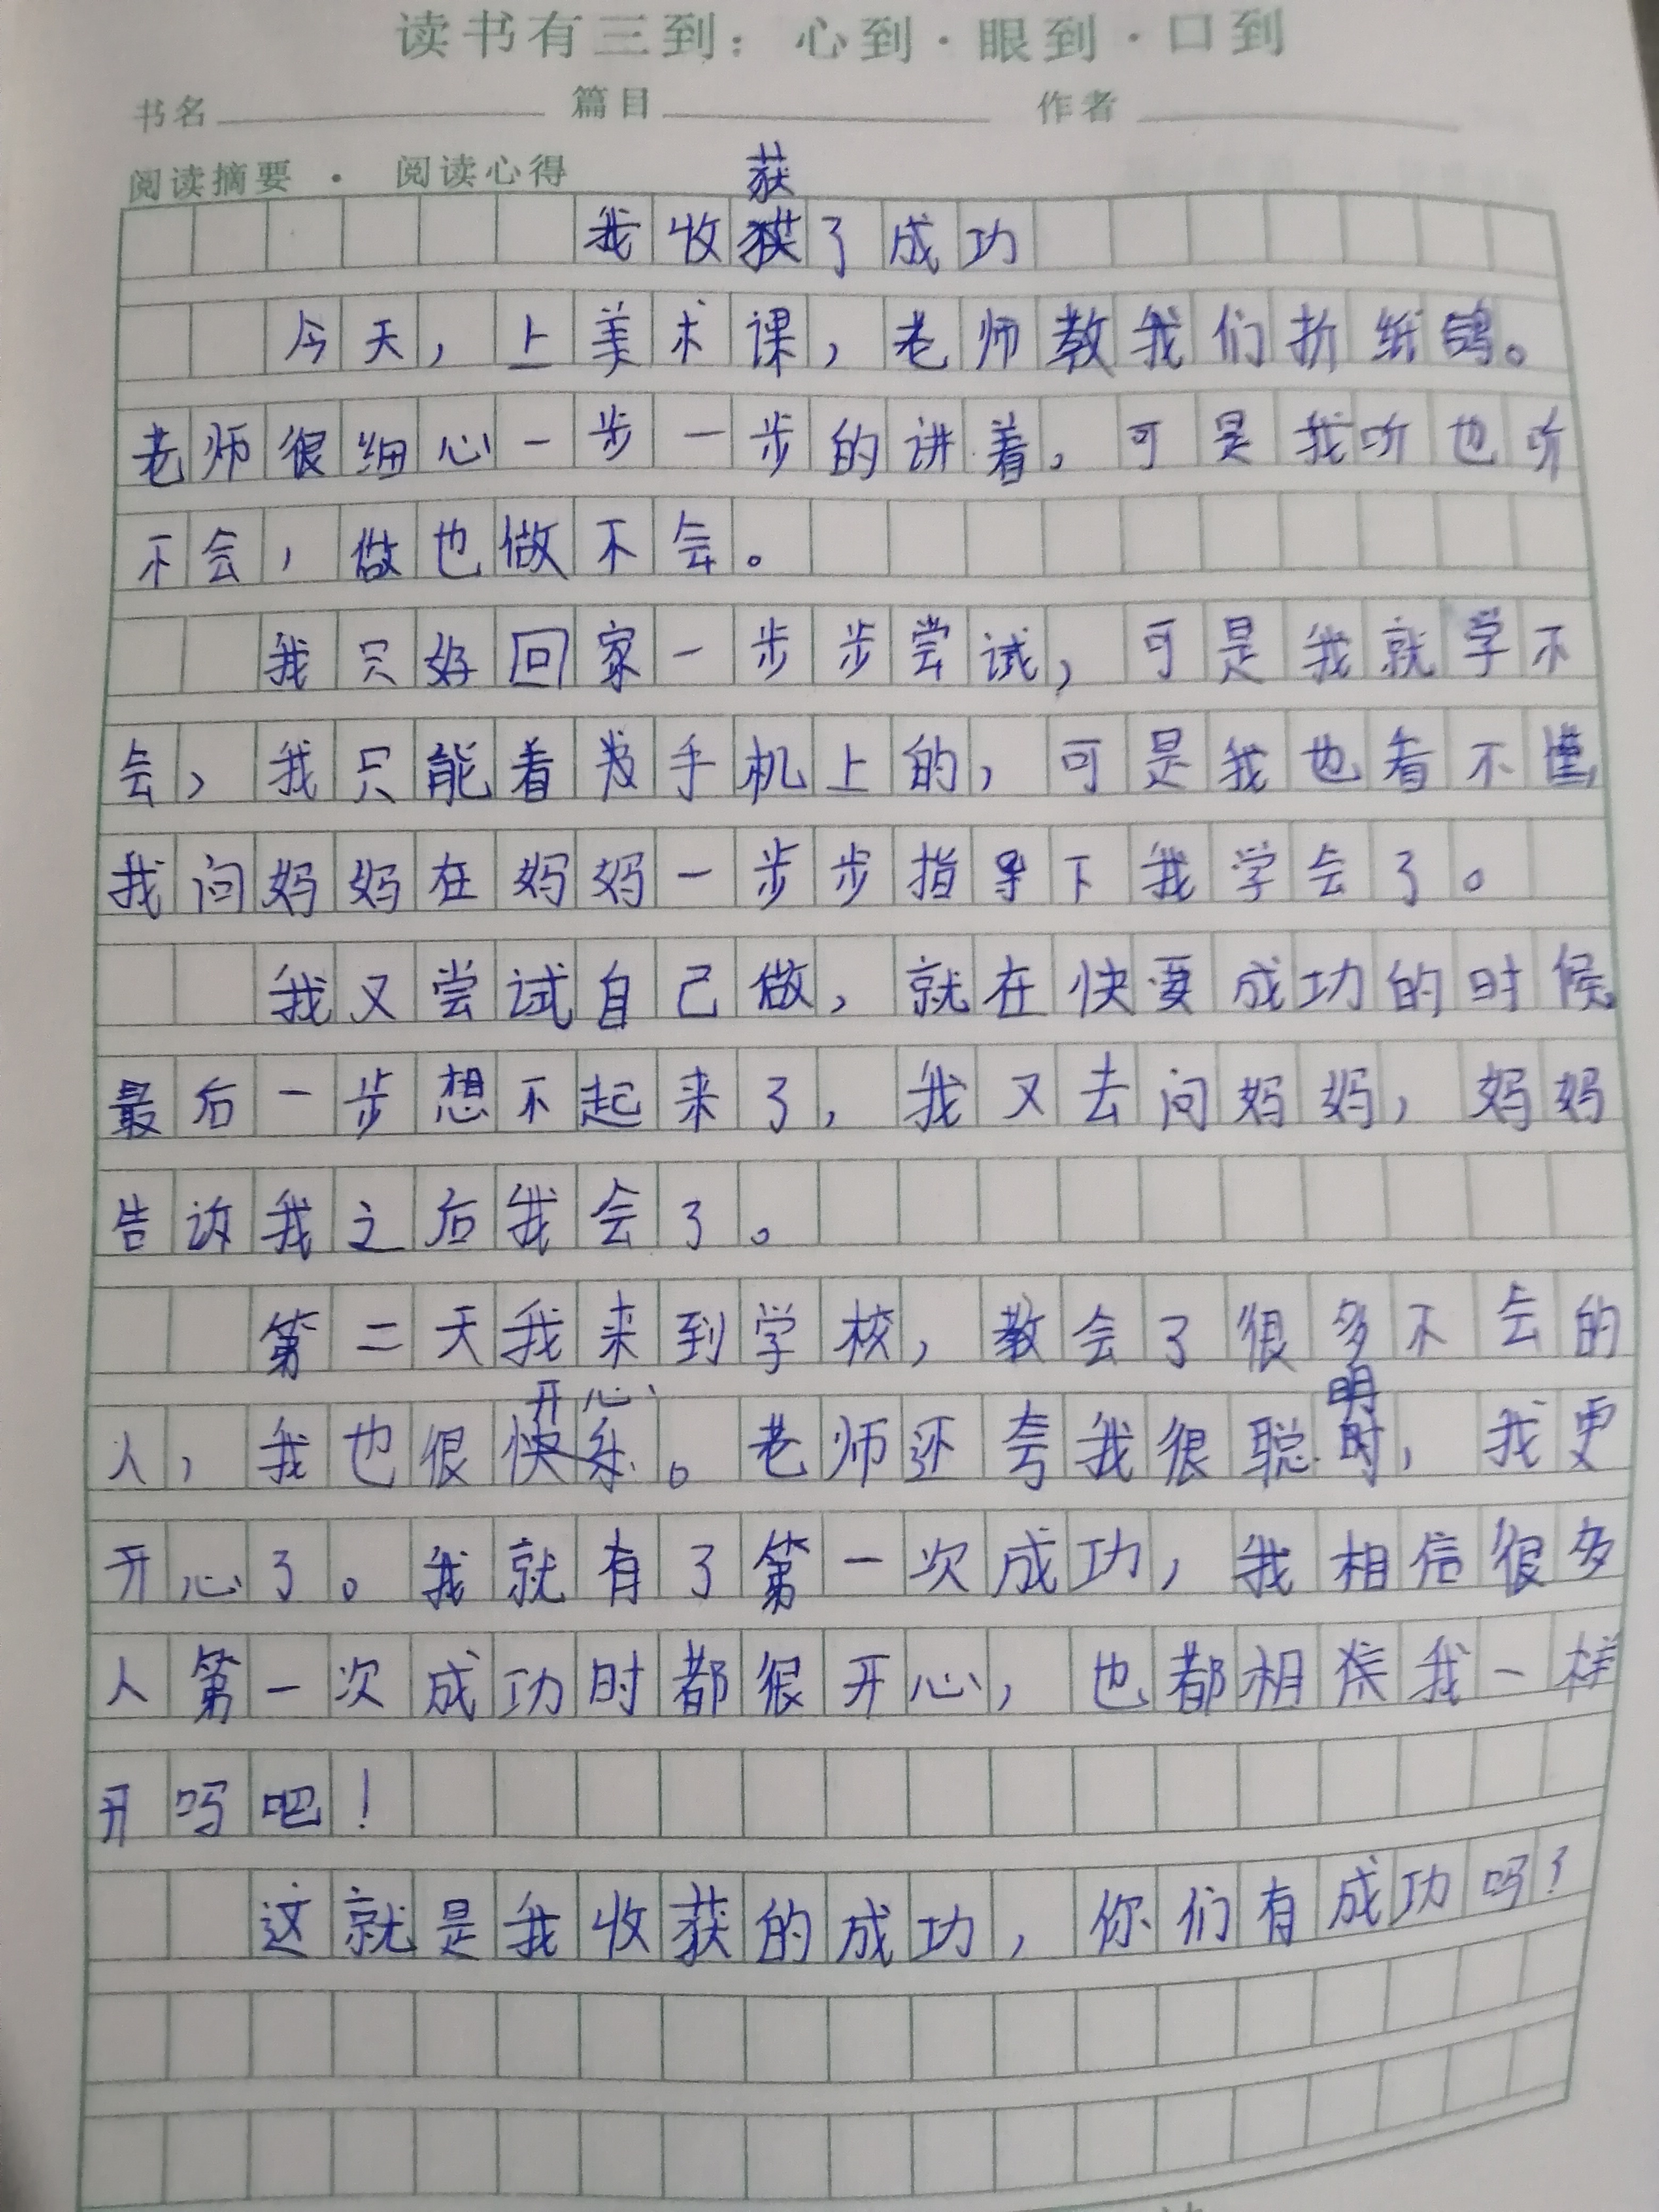 读书有三到：心到·眼到·口到
书名 篇目 作者
阅读摘要 · 阅读心得
获
我收获了成功
今天，上美术课，老师教我们折纸鸽。
老师很细心一步一步的讲着，可是我听也听
不会，做也做不会。
我只好回家一步步尝试，可是我就学不
会，我只能看着手机上的，可是我也看不懂，
我问妈妈在妈妈一步步指导下我学会了。
我又尝试自己做，就在快要成功的时候，
最后一步想不起来了，我又去问妈妈，妈妈
告诉我之后我会了。
第二天我来到学校，教会了很多不会的
开心 明
人，我也很快乐。老师还夸我很聪时，我更
开心了。我就有了第一次成功，我相信很多
人第一次成功时都很开心，也都相信我一样
开吗吧！
这就是我收获的成功，你们有成功吗？